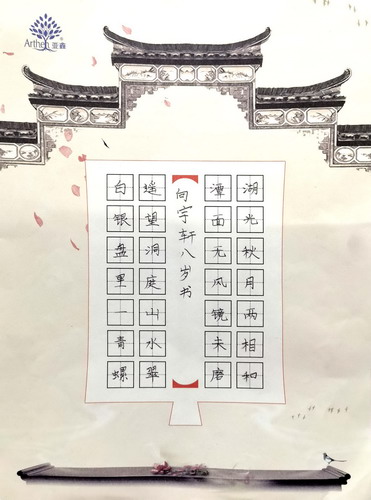 Arthen 亚森
湖光秋月两相和
潭面无风镜未磨
向宇轩八岁书
遥望洞庭山水翠
白银盘里一青螺